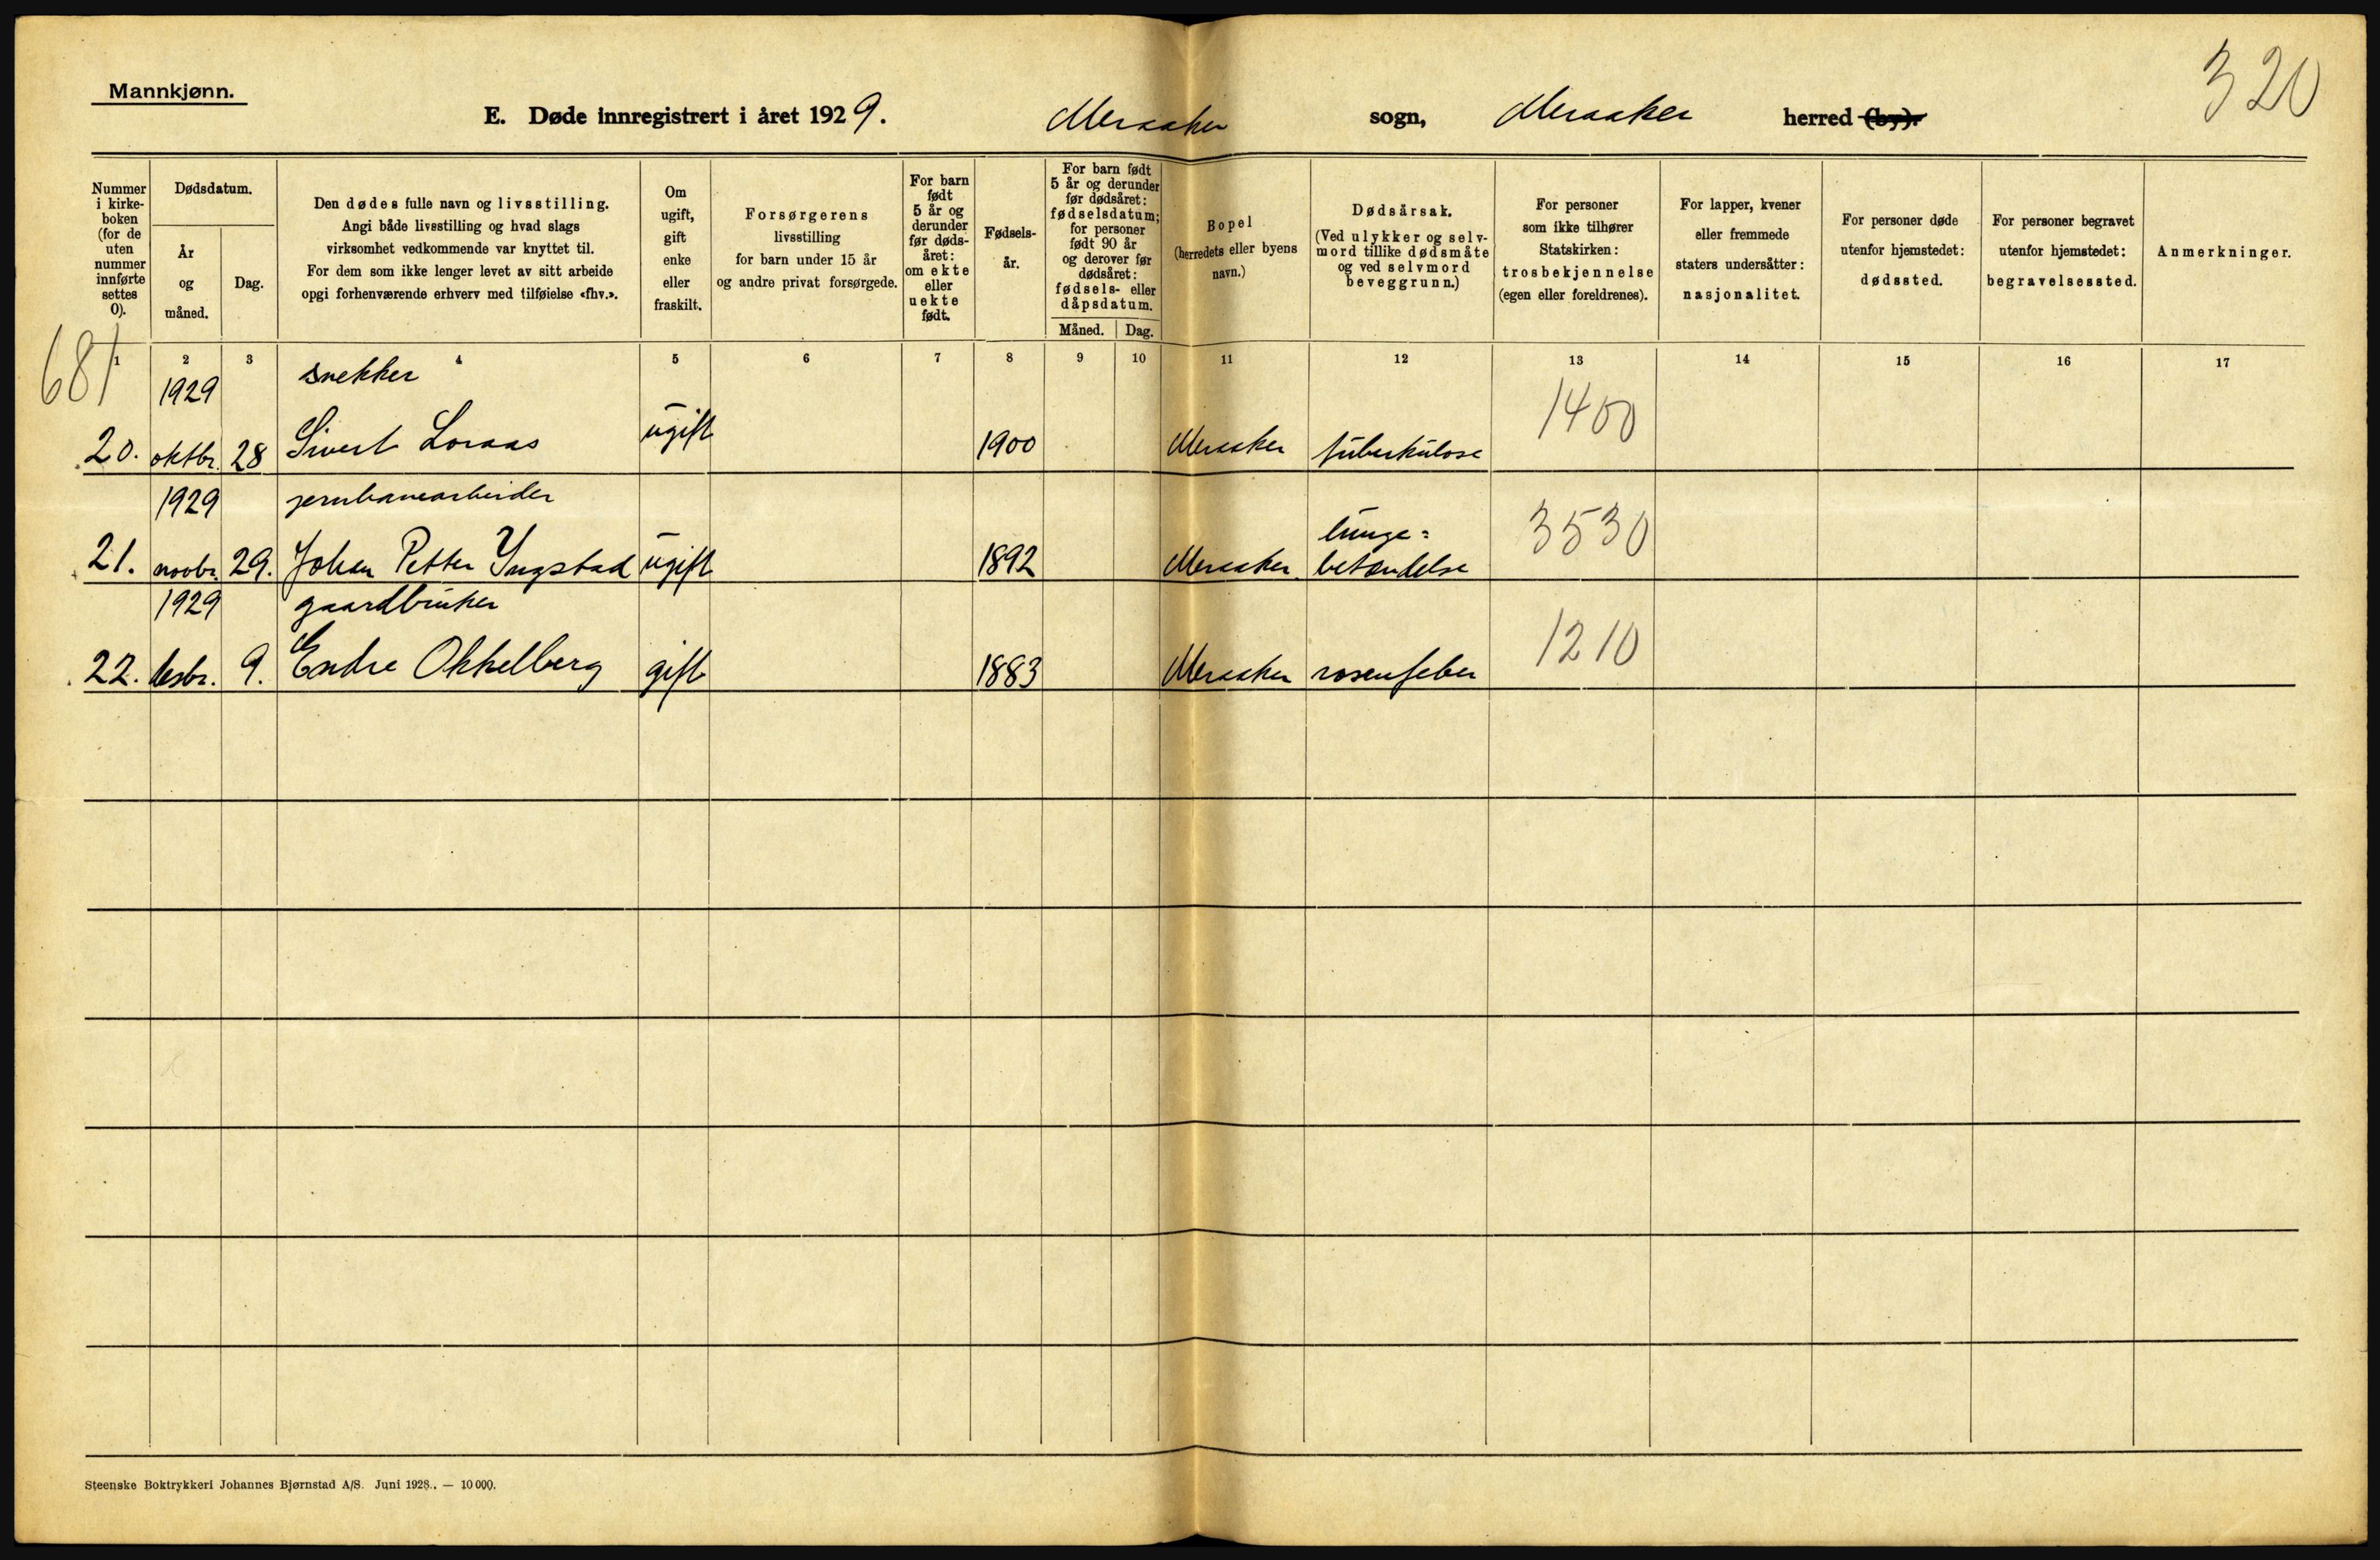 Mannkjønn.
320
E. Døde innregistrert i året 1929. Meraaker sogn, Meraaker herred (by).
Nummer i kirke- boken (for de uten nummer innførte settes 0).
Dødsdatum.
År og måned.
Dag.
Den dødes fulle navn og livsstilling.
Angi både livsstilling og hvad slags
virksomhet vedkommende var knyttet til.
For dem som ikke lenger levet av sitt arbeide
opgi forhenværende erhverv med tilføielse «fhv.».
Om ugift, gift enke eller fraskilt.
Forsørgerens
livsstilling
for barn under 15 år
og andre privat forsørgede.
For barn født 5 år og derunder før døds- året: om ekte eller uekte født.
Fødsels- år.
For barn født 5 år og derunder før dødsåret: fødselsdatum; for personer født 90 år og derover før dødsåret: fødsels- eller dåpsdatum.
Måned. Dag.
Bopel
(herredets eller byens
navn.)
Dødsårsak.
(Ved ulykker og selv-
mord tillike dødsmåte
og ved selvmord
beveggrunn.)
For personer
som ikke tilhører
Statskirken:
trosbekjennelse
(egen eller foreldrenes).
For lapper, kvener
eller fremmede
staters undersåtter:
nasjonalitet.
For personer døde
utenfor hjemstedet:
dødssted.
For personer begravet
utenfor hjemstedet:
begravelsessted.
Anmerkninger.
1 2 3 4 5 6 7 8 9 10 11 12 13 14 15 16 17
681
1929 snekker
20. oktbr. 28 Sivert Loraas ugift 1900 Meraaker tuberkulose 1400
1929 jernbanearbeider
21. novbr. 29. Johan Petter Yngstad ugift 1892 Meraaker lunge= betændelse 3530
1929 gaardbruker
22. desbr. 9. Endre Okkelberg gift 1883 Meraaker rosenfeber 1210
Steenske Boktrykkeri Johannes Bjørnstad A/S. Juni 1928. — 10 000.